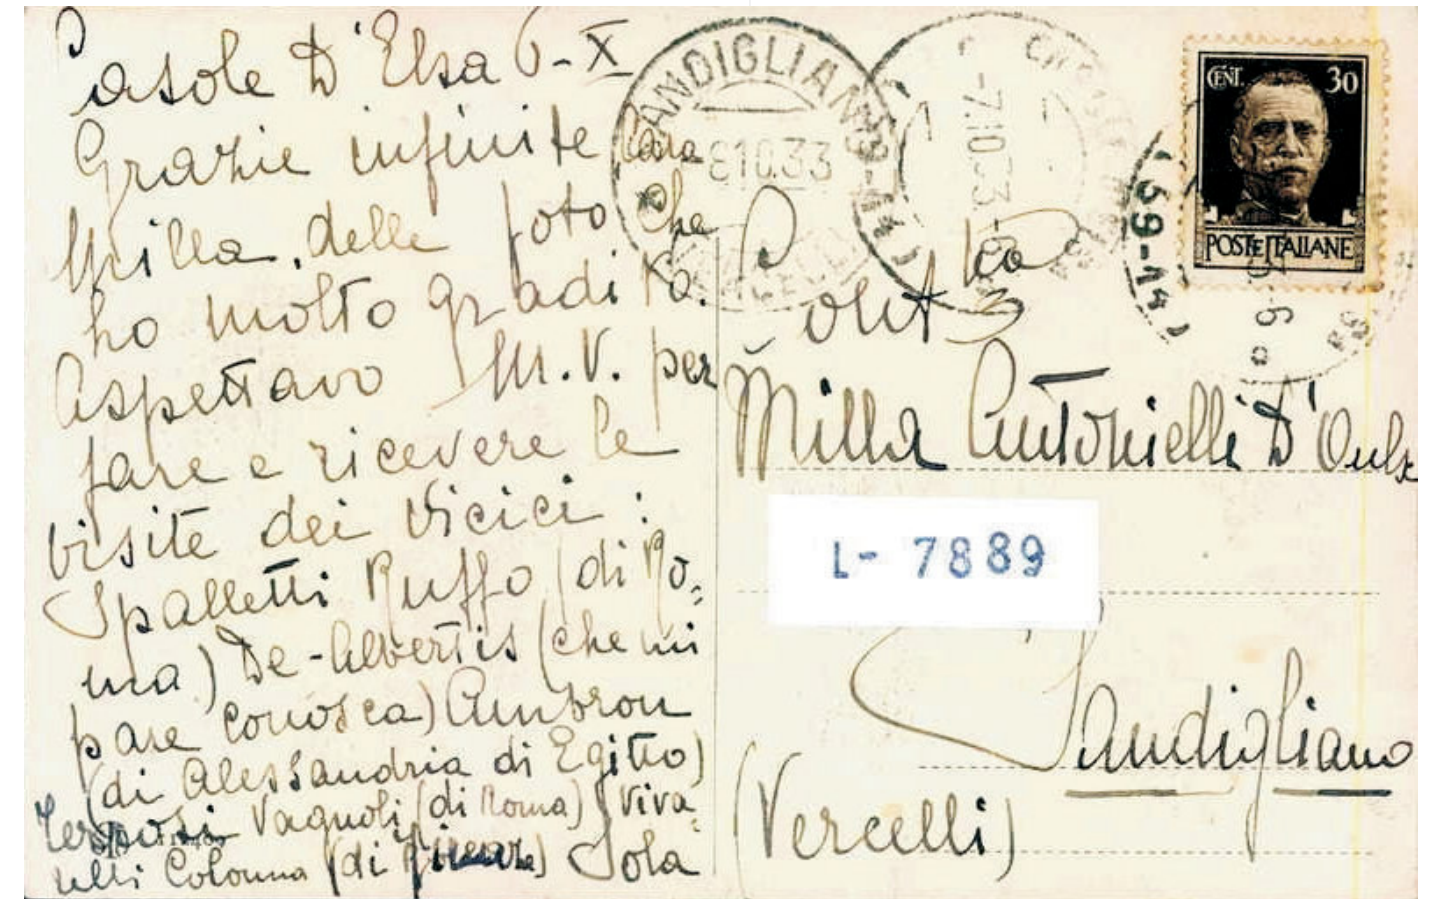 Casole D'Elsa 6-X
Grazie infinite cara
Milla, delle foto che
ho molto gradito.
Aspettavo M.V. per
fare e ricevere le
visite dei vicici:
Spalletti Ruffo (di Ro=
ma) De-Albertis (che mi
pare conosca) Ambron
(di Alessandria di Egitto)
Terrosi Vagnoli (di Roma) Viva=
relli Colonna (di Firenze) Sola
SANDIGLIANO
8.10.33
VERCELLI
-7.10.33
CENT. 30
POSTE ITALIANE
Contssa
Milla Antonielli D'Oulx
L- 7889
Sandigliano
(Vercelli)